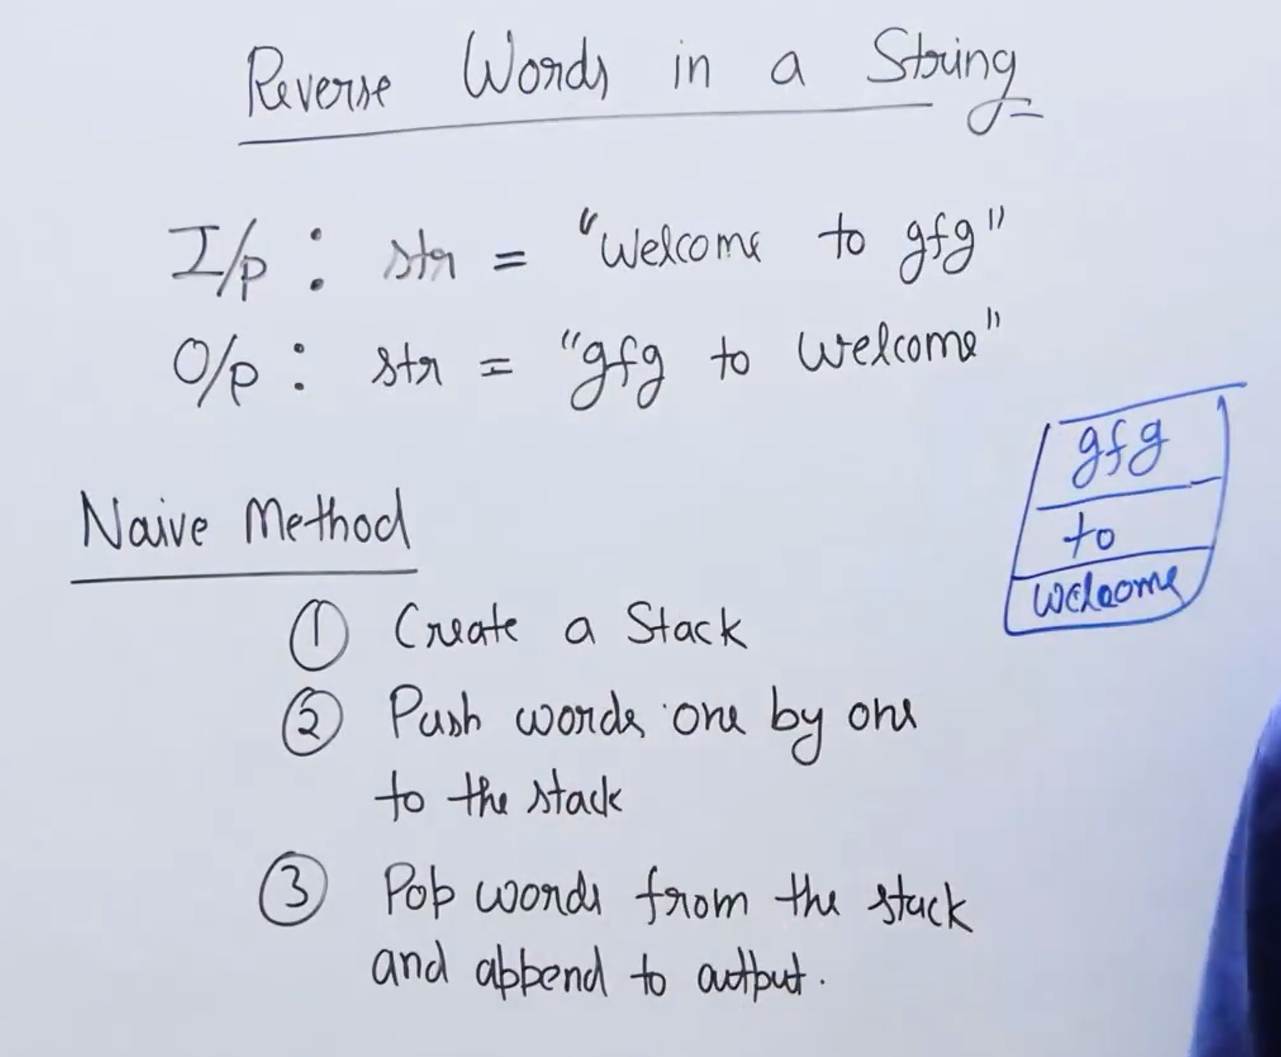 Reverse Words in a String
I/p : str = "Welcome to gfg"
O/p : str = "gfg to Welcome"
gfg
to
welcome
Naive Method
① Create a Stack
② Push words one by one
to the stack
③ Pop words from the stack
and append to output.